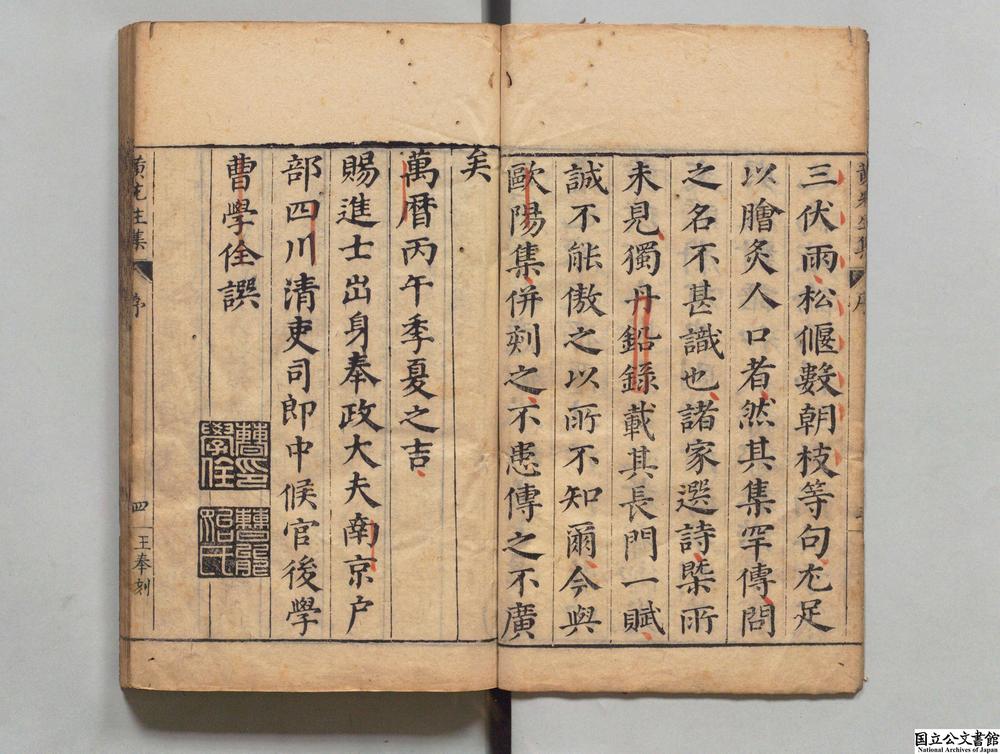 三伏雨松偃數朝枝等句尤足
以膾炙人口者然其集罕傳問
之名不甚識也諸家選詩槩所
未見獨丹鉛錄載其長門一賦
誠不能傲之以所不知爾今與
歐陽集併刻之不患傳之不廣
矣
萬曆丙午季夏之吉
賜進士出身奉政大夫南京户
部四川清吏司郎中候官後學
曹學佺譔
曹印學佺
黄先生集
序
四
王奉刻
国立公文書館
National Archives of Japan